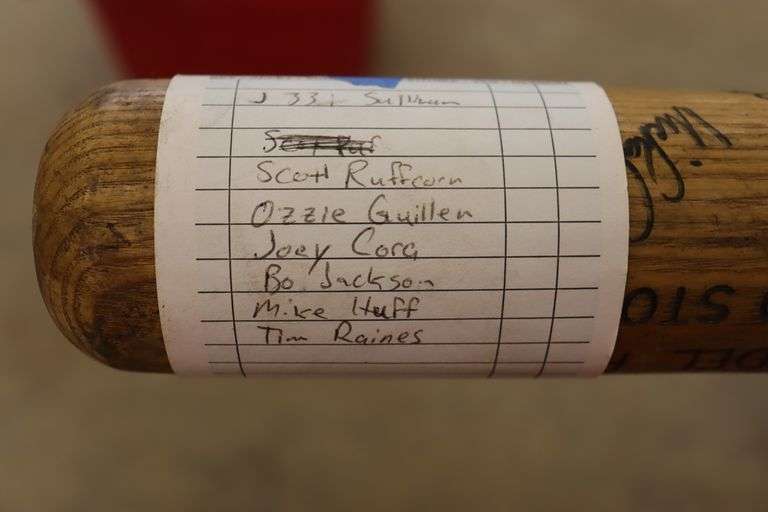 J 331 Sullivan
Scott Ruffcorn
Ozzie Guillen
Joey Cora
Bo Jackson
Mike Huff
Tim Raines
STO
DEL